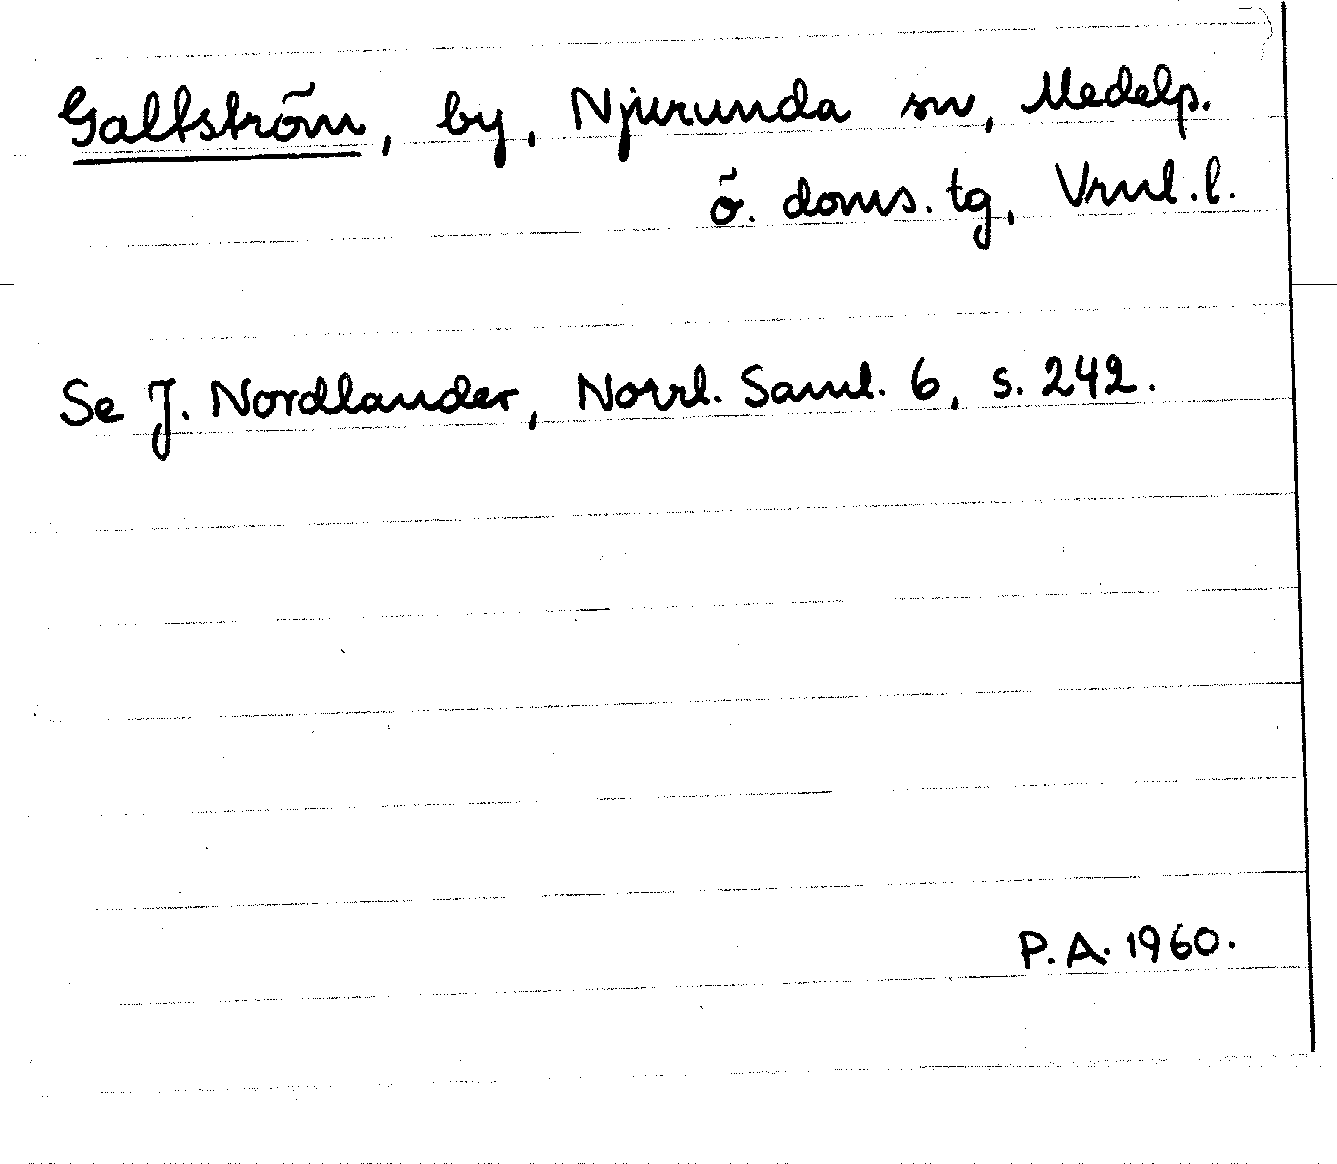 Galtström, by, Njurunda sn, Medelp.
ö. doms. tg, Vrnl. l.
Se J. Nordlander, Norrl. Saml. 6, s. 242.
P. A. 1960.